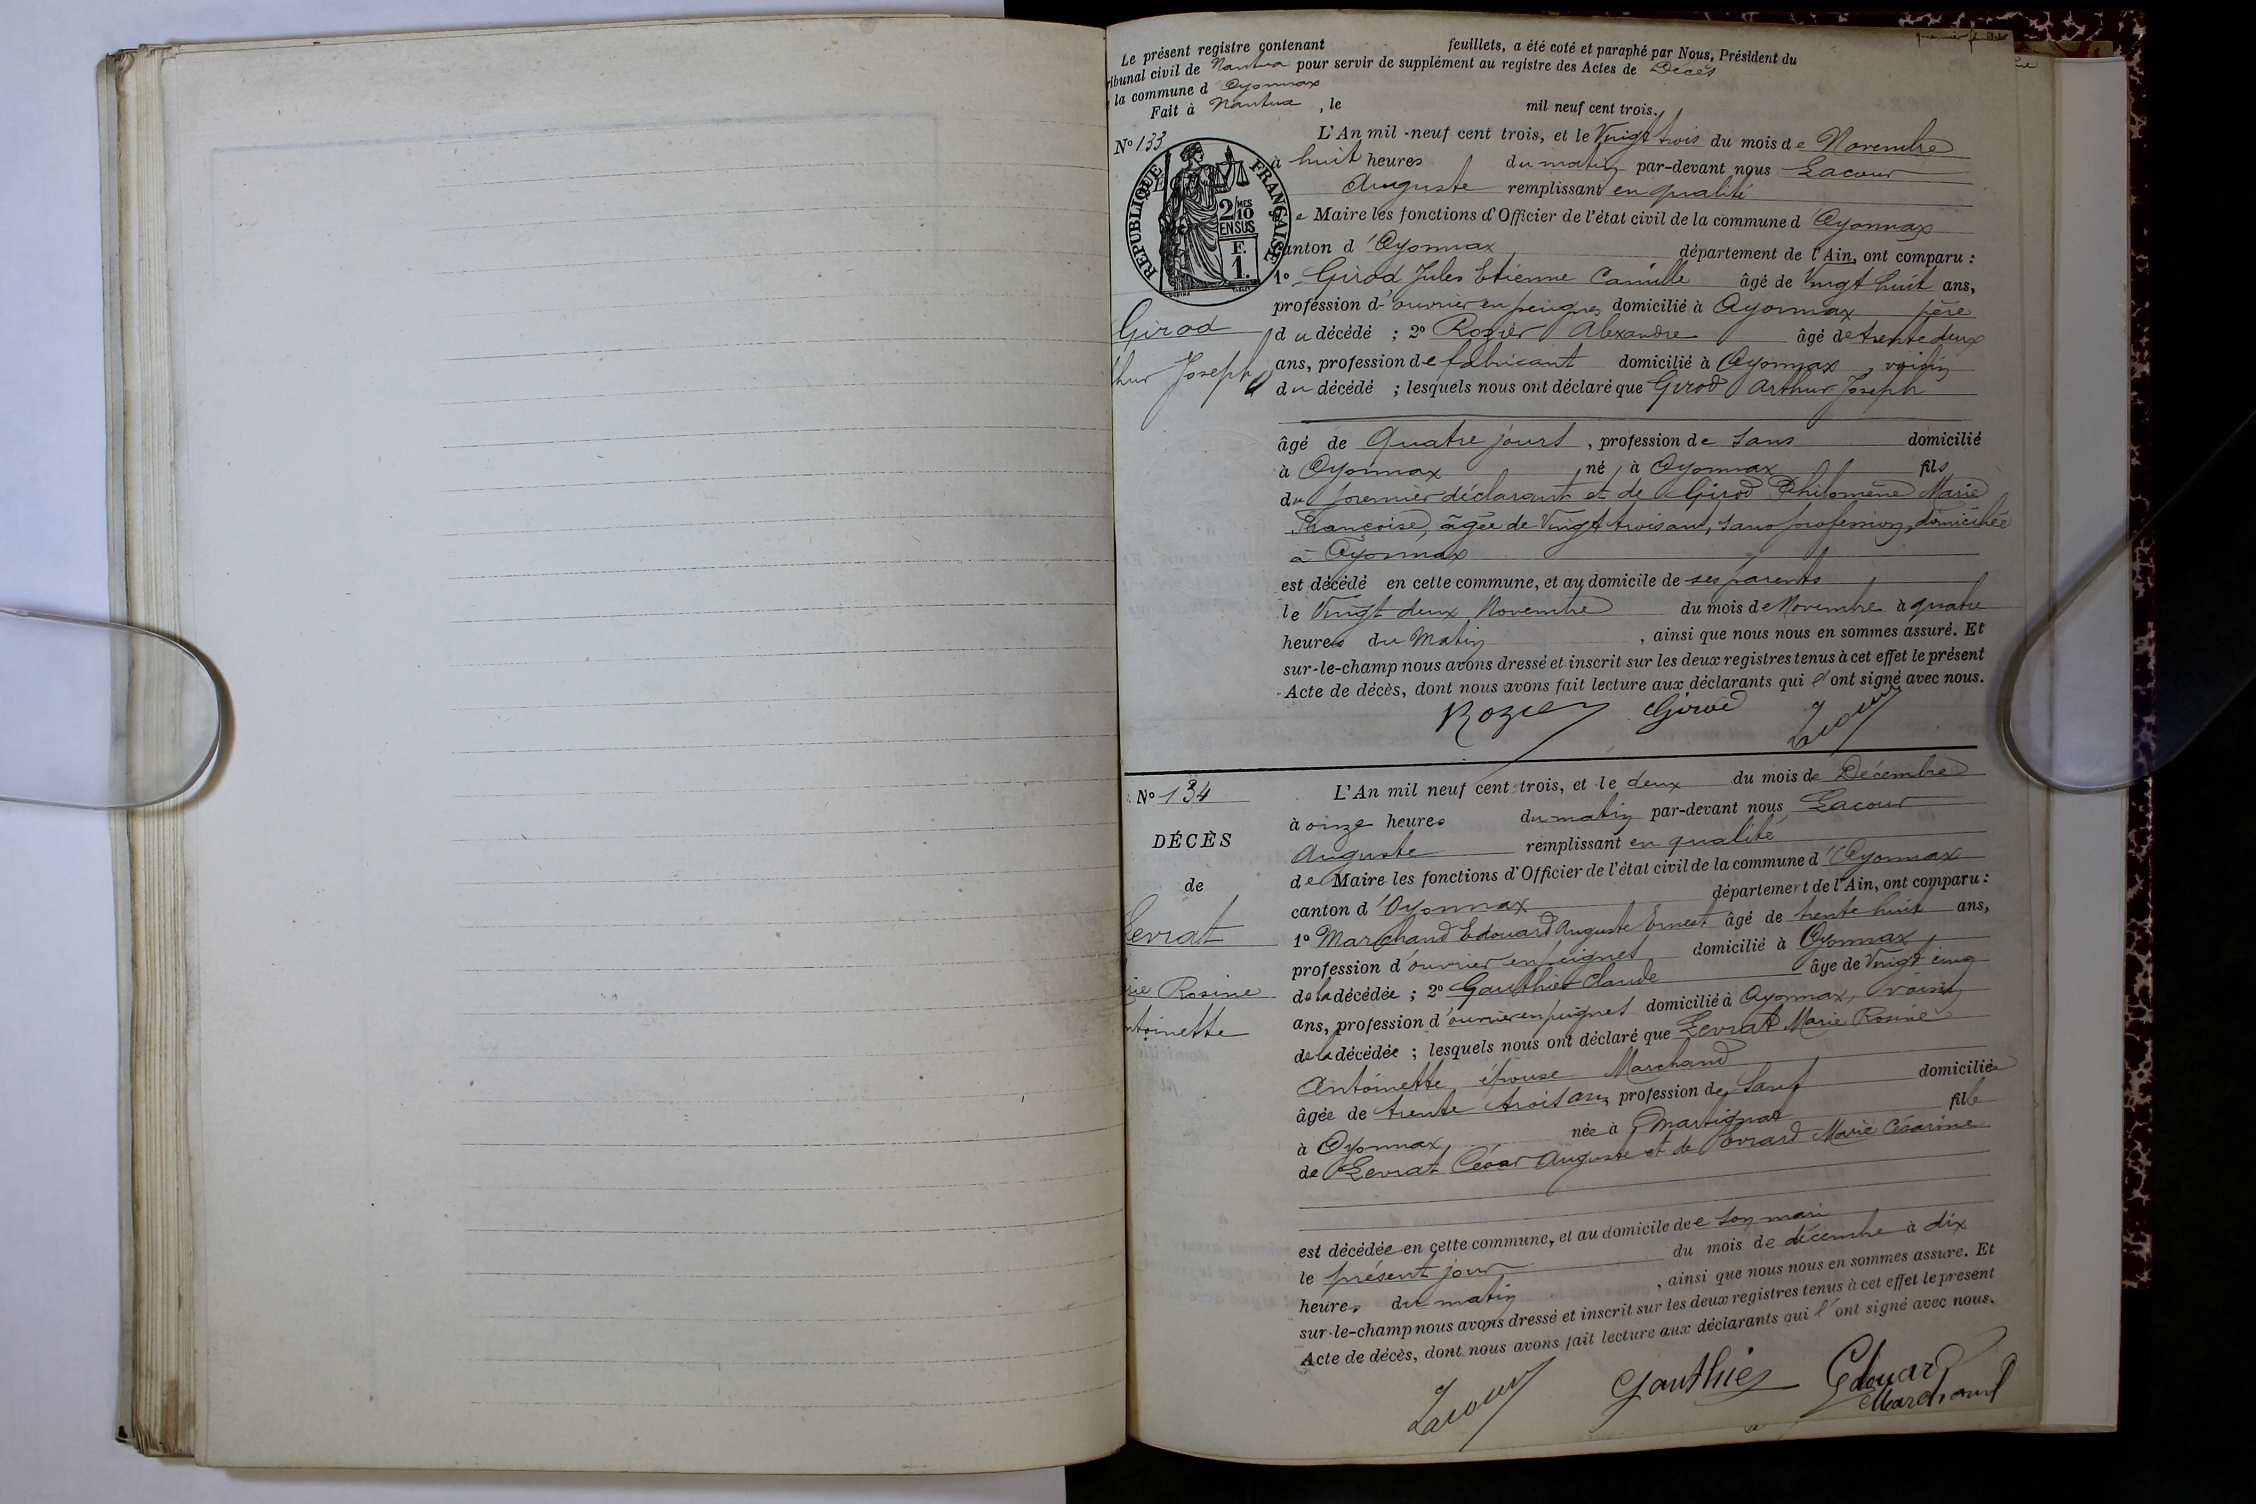 Le présent registre contenant feuillets, a été coté et paraphé par Nous, Président du
ribunal civil de Nantua pour servir de supplément au registre des Actes de Décès
la commune d'Oyonnax
Fait à Nantua, le mil neuf cent trois.
N° 133
RÉPUBLIQUE FRANÇAISE
2/10 MES
EN SUS
F.
1.
L'An mil-neuf cent trois, et le Vingt trois du mois de Novembre
à huit heures du matin par-devant nous Lacour
Auguste remplissant en qualité
e Maire les fonctions d'Officier de l'état civil de la commune d'Oyonnax
anton d'Oyonnax département de l'Ain, ont comparu :
1° Girod Jules Etienne Camille âgé de Vingt huit ans,
profession d'ouvrier en peignes domicilié à Oyonnax père
du décédé ; 2° Rozier Alexandre âgé de trente deux
ans, profession de fabricant domicilié à Oyonnax, voisin
du décédé ; lesquels nous ont déclaré que Girod Arthur Joseph
Girod
hur Joseph
âgé de Quatre jours, profession de sans domicilié
à Oyonnax né à Oyonnax fils
du premier déclarant et de Girod Philomène Marie
Françoise, âgée de Vingt trois ans, sans profession, domiciliée
à Oyonnax
est décédé en cette commune, et au domicile de ses parents
le Vingt deux Novembre du mois de Novembre à quatre
heures du Matin, ainsi que nous nous en sommes assuré. Et
sur-le-champ nous avons dressé et inscrit sur les deux registres tenus à cet effet le présent
Acte de décès, dont nous avons fait lecture aux déclarants qui l'ont signé avec nous.
Rozier Girod Lacour
N° 134
DÉCÈS
de
Levrat
rie Rosine
ntoinette
L'An mil neuf cent trois, et le deux du mois de Décembre
à onze heures du matin par-devant nous Lacour
Auguste remplissant en qualité
de Maire les fonctions d'Officier de l'état civil de la commune d'Oyonnax
canton d'Oyonnax département de l'Ain, ont comparu :
1° Marchand Edouard Auguste Ernest âgé de trente huit ans,
profession d'ouvrier en peignes domicilié à Oyonnax
de la décédée ; 2° Gauthier Claude âgé de Vingt cinq
ans, profession d'ouvrier en peignes domicilié à Oyonnax, voisin
de la décédée ; lesquels nous ont déclaré que Levrat Marie Rosine
Antoinette épouse Marchand
âgée de trente trois ans, profession de sans domiciliée
à Oyonnax née à Martignat fille
de Levrat César Auguste et de Marie Césarine
est décédée en cette commune, et au domicile de son mari
le présent jour du mois de décembre à dix
heures du matin, ainsi que nous nous en sommes assuré. Et
sur-le-champ nous avons dressé et inscrit sur les deux registres tenus à cet effet le présent
Acte de décès, dont nous avons fait lecture aux déclarants qui l'ont signé avec nous.
Lacour Gauthier Edouard
Marchand